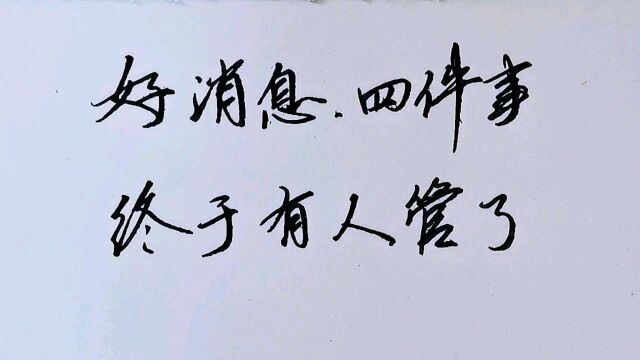 好消息.四件事
终于有人管了